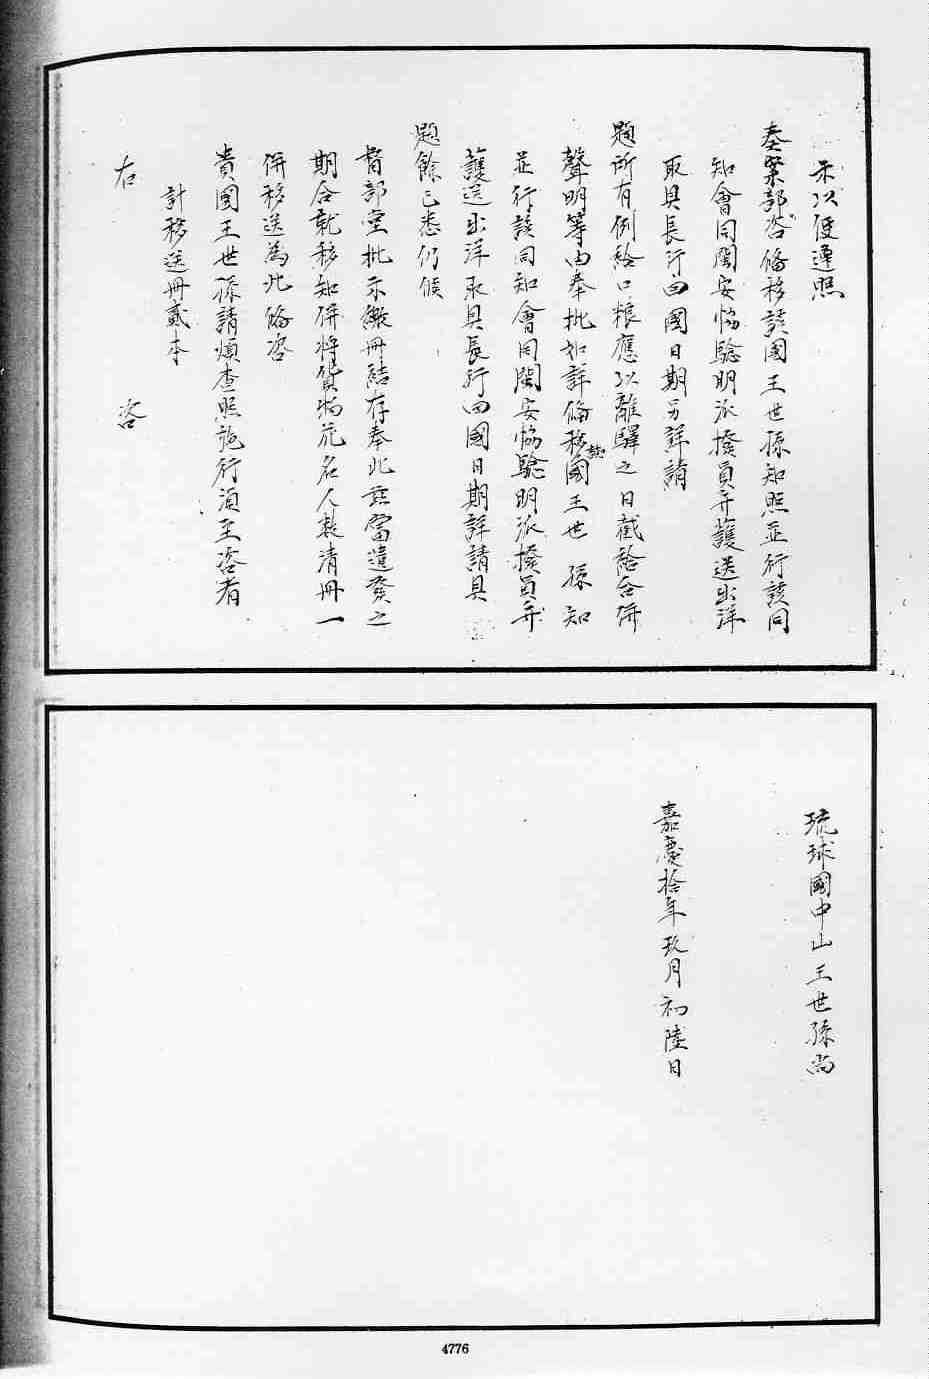 示以便遵照
奉察部咨備移該國王世孫知照並行該同
知會同閩安協驗明派撥員弁護送出洋
取具長行回國日期另詳請
題所有例給口粮應以離驛之日截給合併
聲明等由奉批如詳備移該國王世孫知
並行該同知會同閩安協驗明派撥員弁
護送出洋取具長行回國日期詳請具
題餘已悉仍候
督部堂批示繳冊結存奉此茲當遣發之
期合就移知併將貨物花名人數清冊一
併移送為此備咨
貴國王世孫請煩查照施行須至咨者
計移送冊貳本
右 咨
琉球國中山王世孫尚
嘉慶拾年玖月初陸日
4776